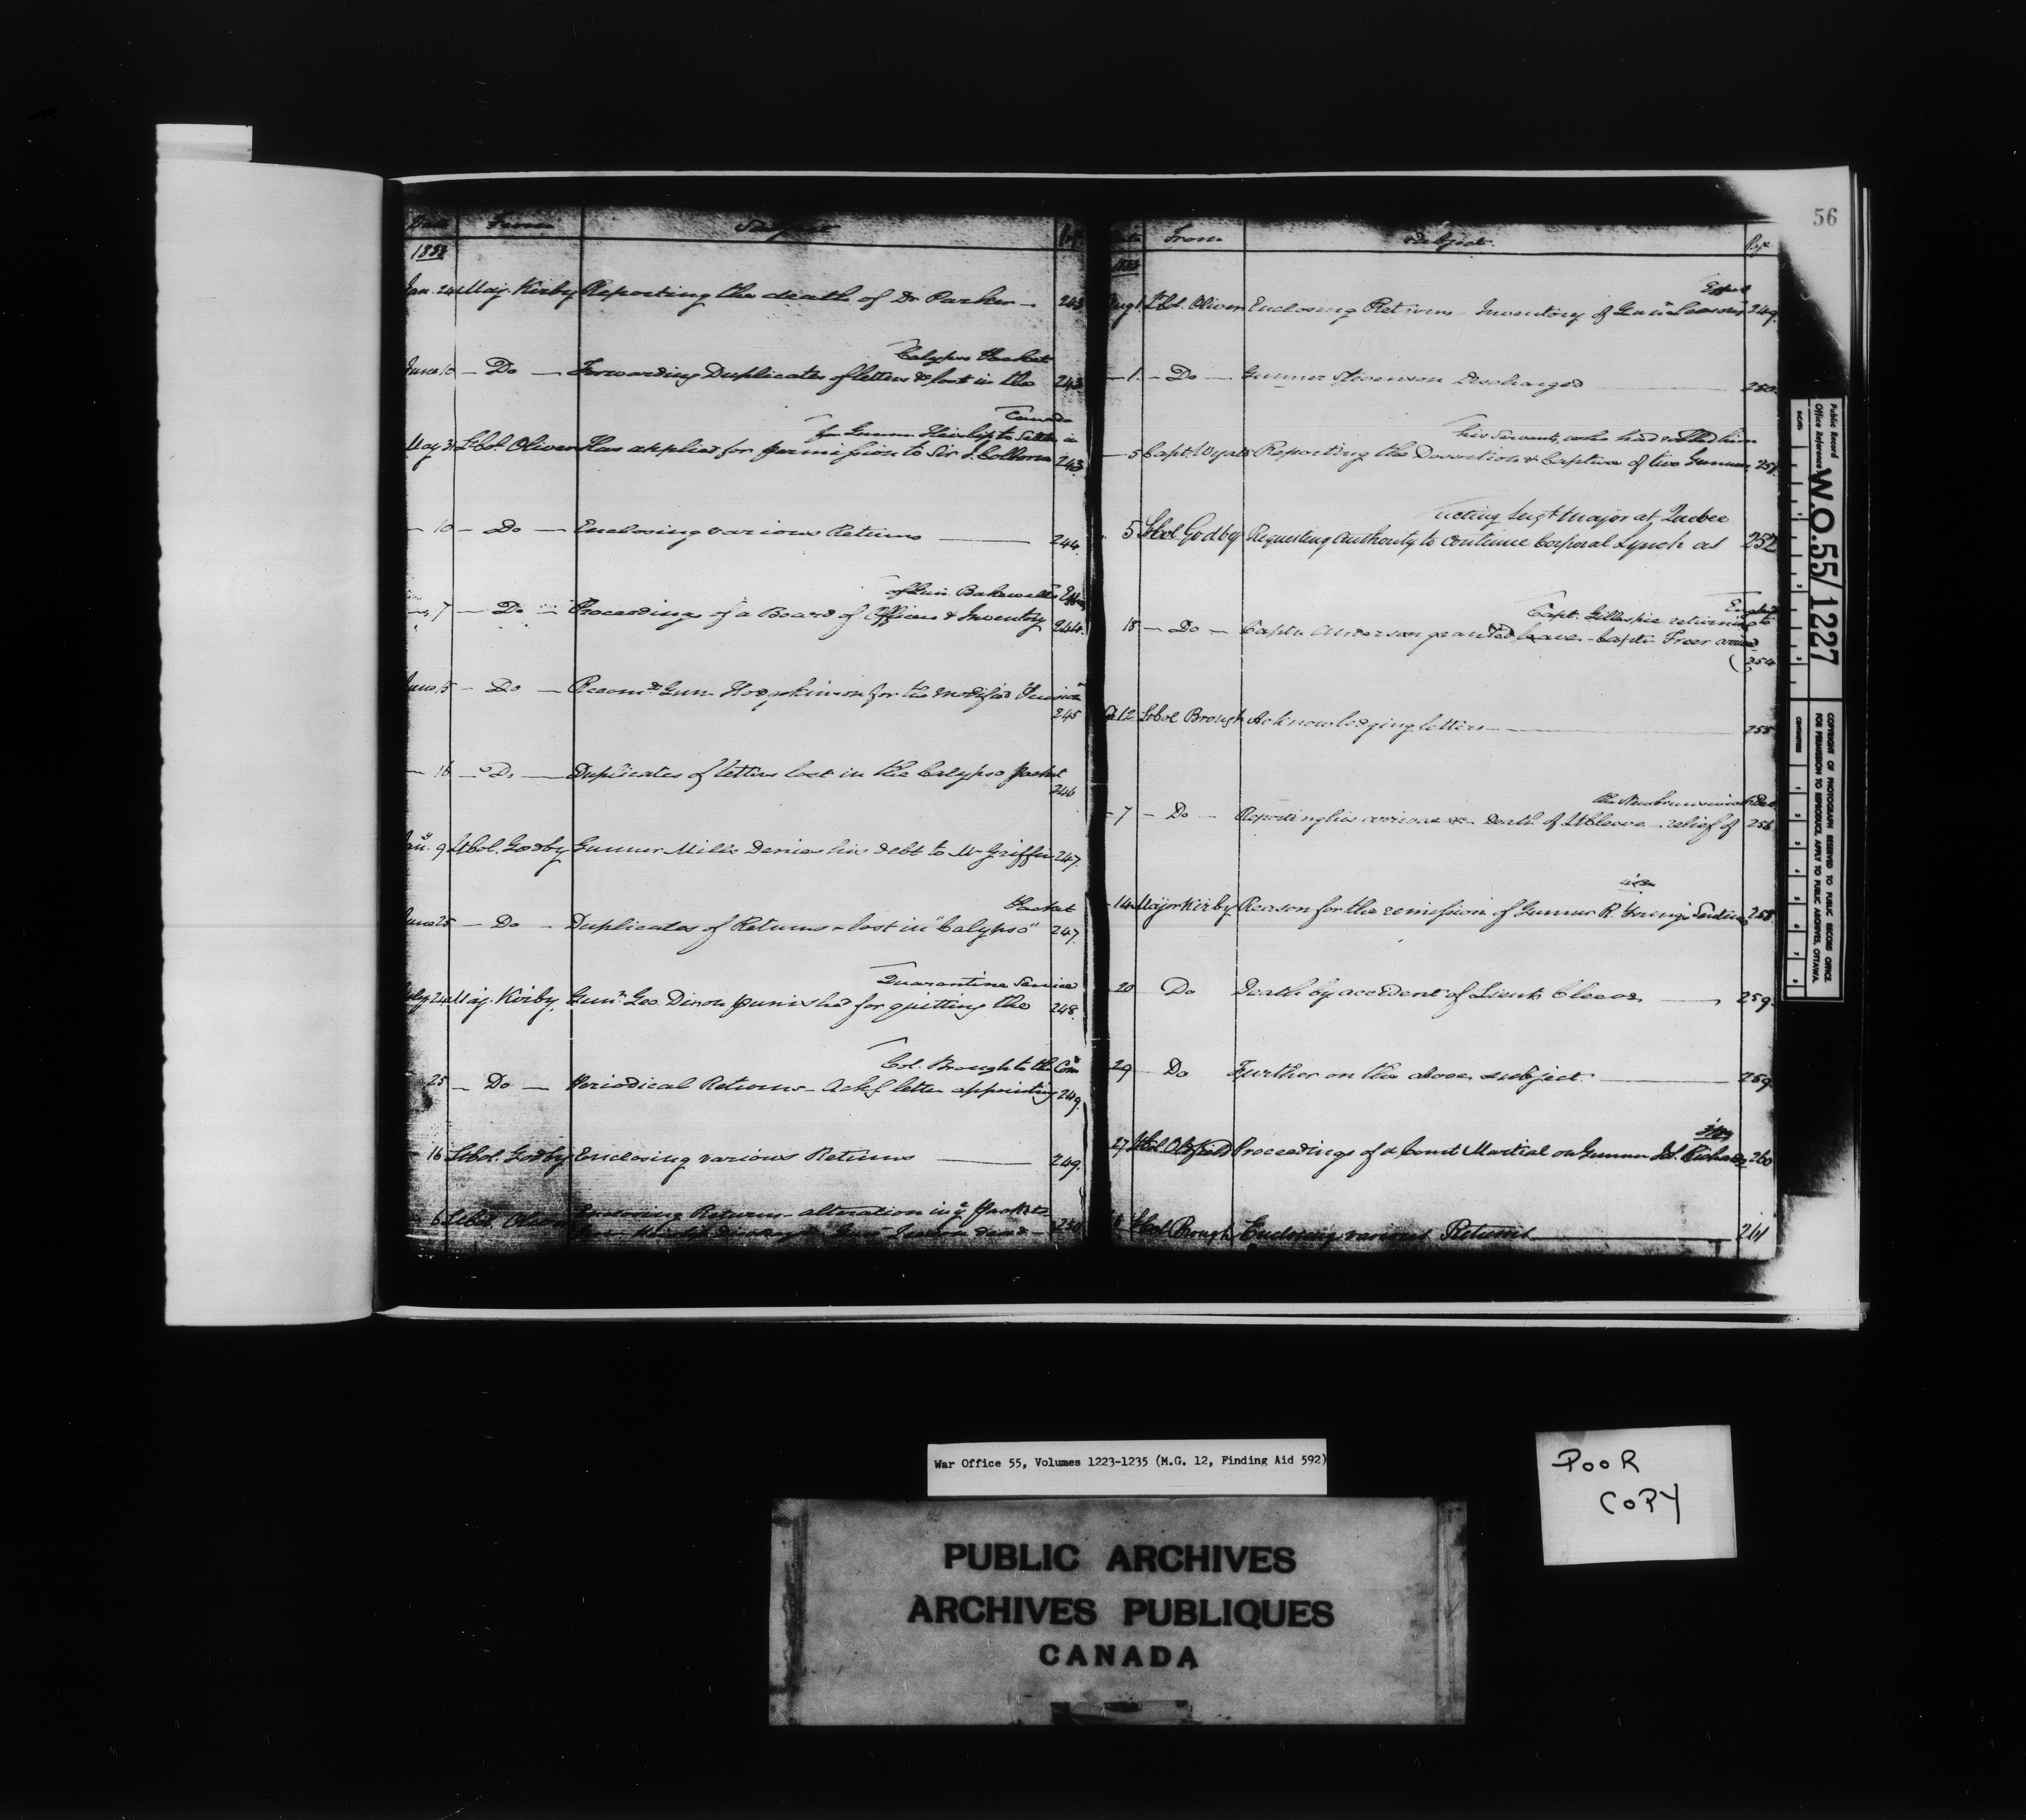 Date From Subject
183
Jan. 24 Maj. Kirby Reporting the death of Dr Parker — 243
Calypso Packet
June 10 — Do — Forwarding Duplicates of letters &c lost in the 243
Canada
for Gunner to Settle in
May 31 Lt Col. Oliver Has applied for permission to Sir J. Colborne 243
— 10 — Do — Enclosing various Returns — 244
of Gun. Bakewell's Effects
— 7 — Do — Proceedings of a Board of Officers & Inventory 244
June 5 — Do — Recomds Gunr Hodgskinson for the modified Pension
245
— 16 — Do — Duplicates of letters lost in the Calypso packet
246
Jany. 9 Lt Col. Godby Gunner Mills Denies his debt to Mr Griffin 247
Packet
June 25 — Do — Duplicates of Returns & lost in "Calypso" 247
Quarantine Service
July 24 Maj. Kirby, Gunr. Geo. Dixon punished for quitting the 248
Col. Brough to the Comd
25 — Do — Periodical Returns — Ackg letter appointing 249
— 16 Lt Col. Godby Enclosing various Returns — 249
6 Lt Col. Oliver Enclosing Returns — alteration in ye Jackets
250
56
From Subject Page
Effects
Aug 1 Lt Col. Oliver Enclosing Returns Inventory of Gunr 249
— 1. — Do — Gunner Stevenson Discharged — 250
his Servants, who had robbed him
— 5 Capt. Wyatt Reporting the Desertion & Capture of two Gunners, 251
acting Sergt Major at Quebec
5 Lt Col Godby Requesting authority to continue Corporal Lynch as 252
England
Capt. Gillespie returning to
18 — Do — Captn Anderson granted leave — Captn Freer arrived
254
12 Lt Col Brough Acknowledging letters — 255
the New brunswick Det
— 7 — Do — Reporting his arrival &c Death of Lt Cleeve — relief of 256
— 14 Major Kirby Reason for the remission of Gunner R. Young's Sentence 258
20 Do Death by accident of Lieut Cleeve — 259
29 Do Further on the above subject — 259
27 Lt Col Oldfield Proceedings of a Court Martial on Gunner Js. Richards 260
Lt Col Brough Enclosing various Returns — 261
Public Record
Office Reference
W.O.55/1227
COPYRIGHT OF PHOTOGRAPH RESERVED TO PUBLIC RECORD OFFICE
FOR PERMISSION TO REPRODUCE, APPLY TO PUBLIC ARCHIVES, OTTAWA
War Office 55, Volumes 1223-1235 (M.G. 12, Finding Aid 592)
POOR
COPY
PUBLIC ARCHIVES
ARCHIVES PUBLIQUES
CANADA